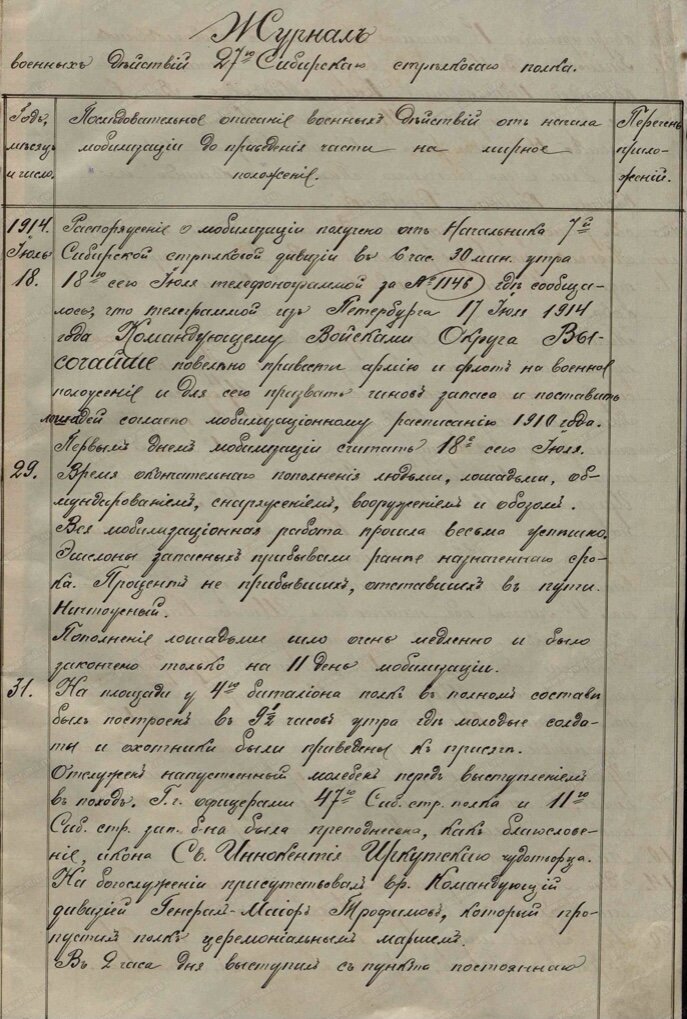 Журналъ
военныхъ дѣйствій 27го Сибирскаго стрѣлковаго полка.
Годъ, мѣсяцъ и число.
Послѣдовательное описаніе военныхъ дѣйствій отъ начала
мобилизаціи до приведенія части на мирное
положеніе.
Перечень
прило-
женій.
1914.
Іюль
18.
Распоряженіе о мобилизаціи получено отъ Начальника 7й
Сибирской стрѣлковой дивизіи въ 6 час. 30 мин. утра
18го сего Іюля телефонограммой за № 1146 гдѣ сообща-
лось, что телеграммой изъ Петербурга 17 Іюля 1914
года Командующему Войсками Округа Вы-
сочайше повелѣно привести армію и флотъ на военное
положеніе и для сего призвать чиновъ запаса и поставить
лошадей согласно мобилизаціонному расписанію 1910 года.
Первымъ днемъ мобилизаціи считать 18е сего Іюля.
29.
Время окончательнаго пополненія людьми, лошадьми, об-
мундированіемъ, снаряженіемъ, вооруженіемъ и обозомъ.
Вся мобилизаціонная работа прошла весьма успѣшно.
Эшелоны запасныхъ прибывали ранѣе назначеннаго сро-
ка. Процентъ не прибывшихъ, отставшихъ въ пути.
Ничтожный.
Пополненіе лошадьми шло очень медленно и было
закончено только на 11 день мобилизаціи.
31.
На площади у 4го баталіона полкъ въ полномъ составѣ
былъ построенъ въ 9½ часовъ утра гдѣ молодые солда-
ты и охотники были приведены къ присягѣ.
Отслуженъ напутственный молебенъ передъ выступленіемъ
въ походъ. Г.г. офицерами 47го Сиб. стр. полка и 11го
Сиб. стр. зап. б-на была преподнесена, какъ благослове-
ніе, икона Св. Иннокентія Иркутскаго чудотворца.
На богослуженіи присутствовалъ вр. Командующій
дивизіей Генералъ-Маіоръ Трофимовъ, который про-
пустилъ полкъ церемоніальнымъ маршемъ.
Въ 2 часа дня выступилъ съ пункта постояннаго